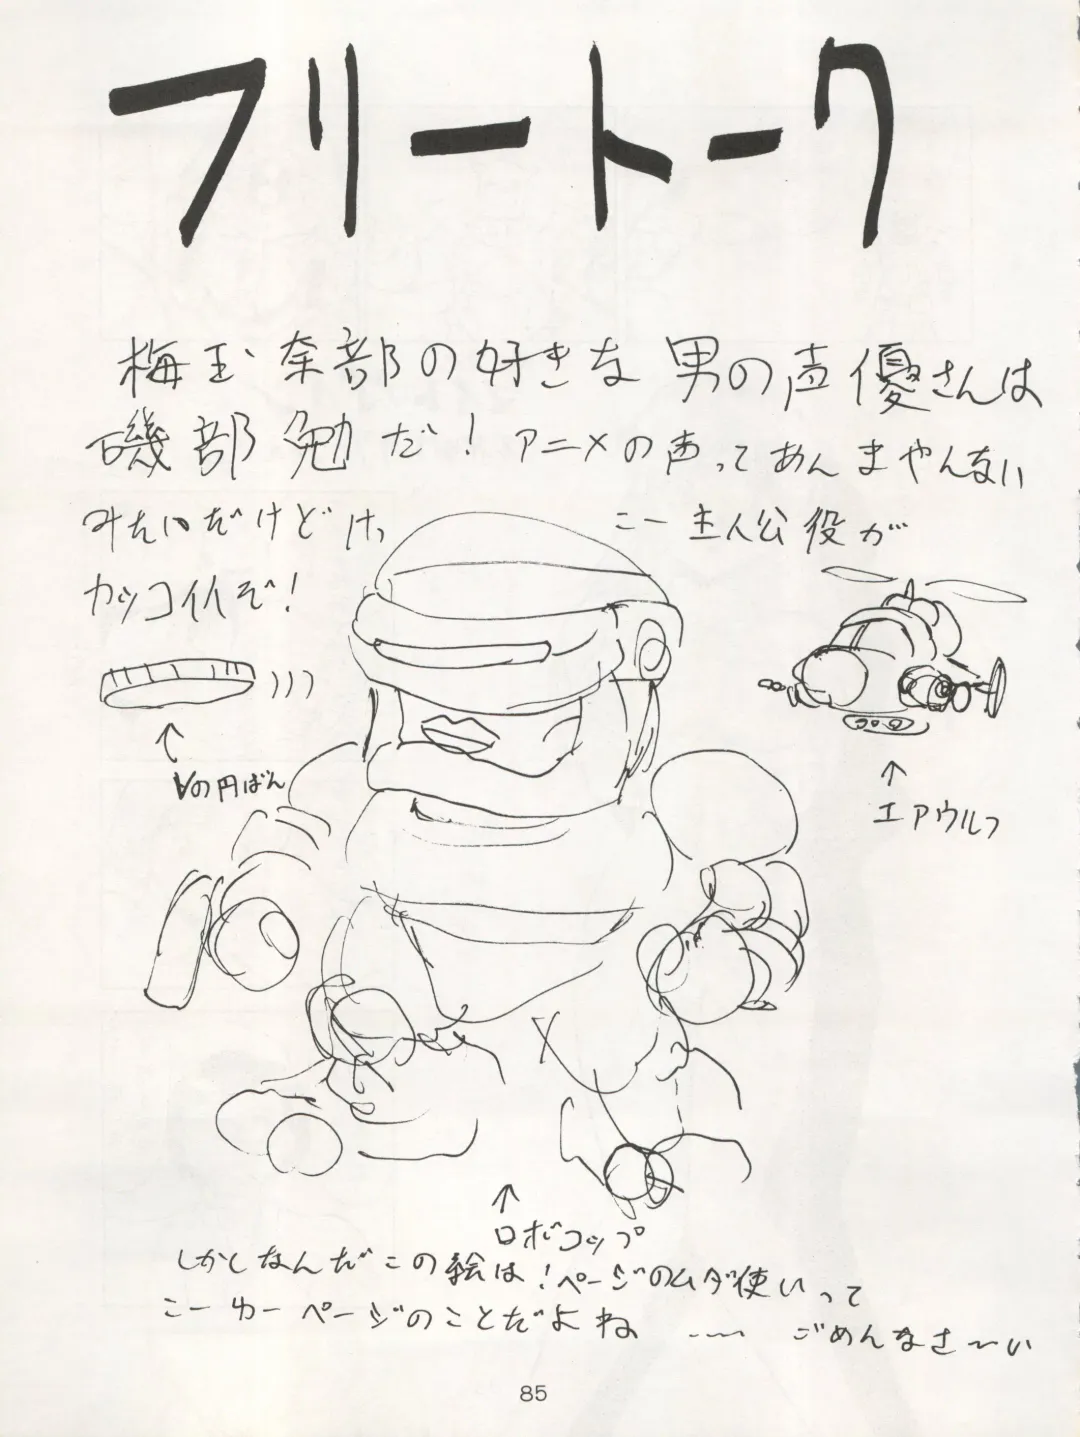 フリートーク
梅玉奈部の好きな男の声優さんは
磯部勉だ！アニメの声ってあんまやんない
みたいだけどけっこー主人公役が
カッコイイぞ！
Vの円ばん
エアウルフ
ロボコップ
しかしなんだこの絵は！ページのムダ使いって
こーゆーページのことだよね ……ごめんなさ〜い
85